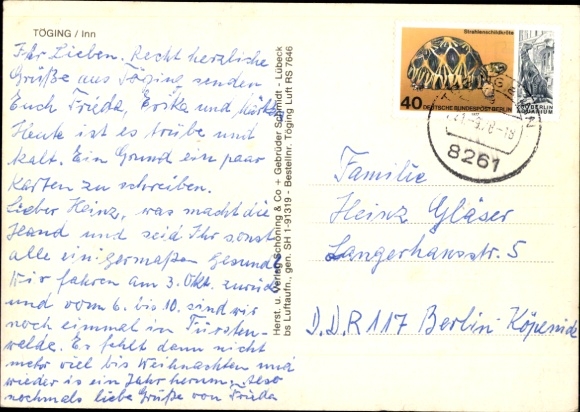 TÖGING / Inn
Ihr Lieben. Recht herzliche
Grüße aus Töging senden
Euch Frieda, Erika und
Heute ist es trübe und
kalt. Ein Grund ein paar
Karten zu schreiben.
Lieber Heinz, was macht die
Hand und seid Ihr sonst
alle einigermaßen Gesund.
Wir fahren am 3. Okt. zurück
und vom 6. bis 10. sind wir
noch einmal in Fürsten-
walde. Es fehlt dann nicht
mehr viel bis Weihnachten und
wieder is ein Jahr herum. Also
nochmals liebe Grüße von Frieda
Herst. u. Verlag Schöning & Co + Gebrüder Schmidt - Lübeck
bs Luftaufn., gen. SH 1-91319 - Bestellnr. Töging Luft RS 7646
Strahlenschildkröte
40 DEUTSCHE BUNDESPOST BERLIN
BERLIN
8261
Familie
Heinz Gläser
Langerhansstr. 5
D.D.R 117 Berlin-Köpenick